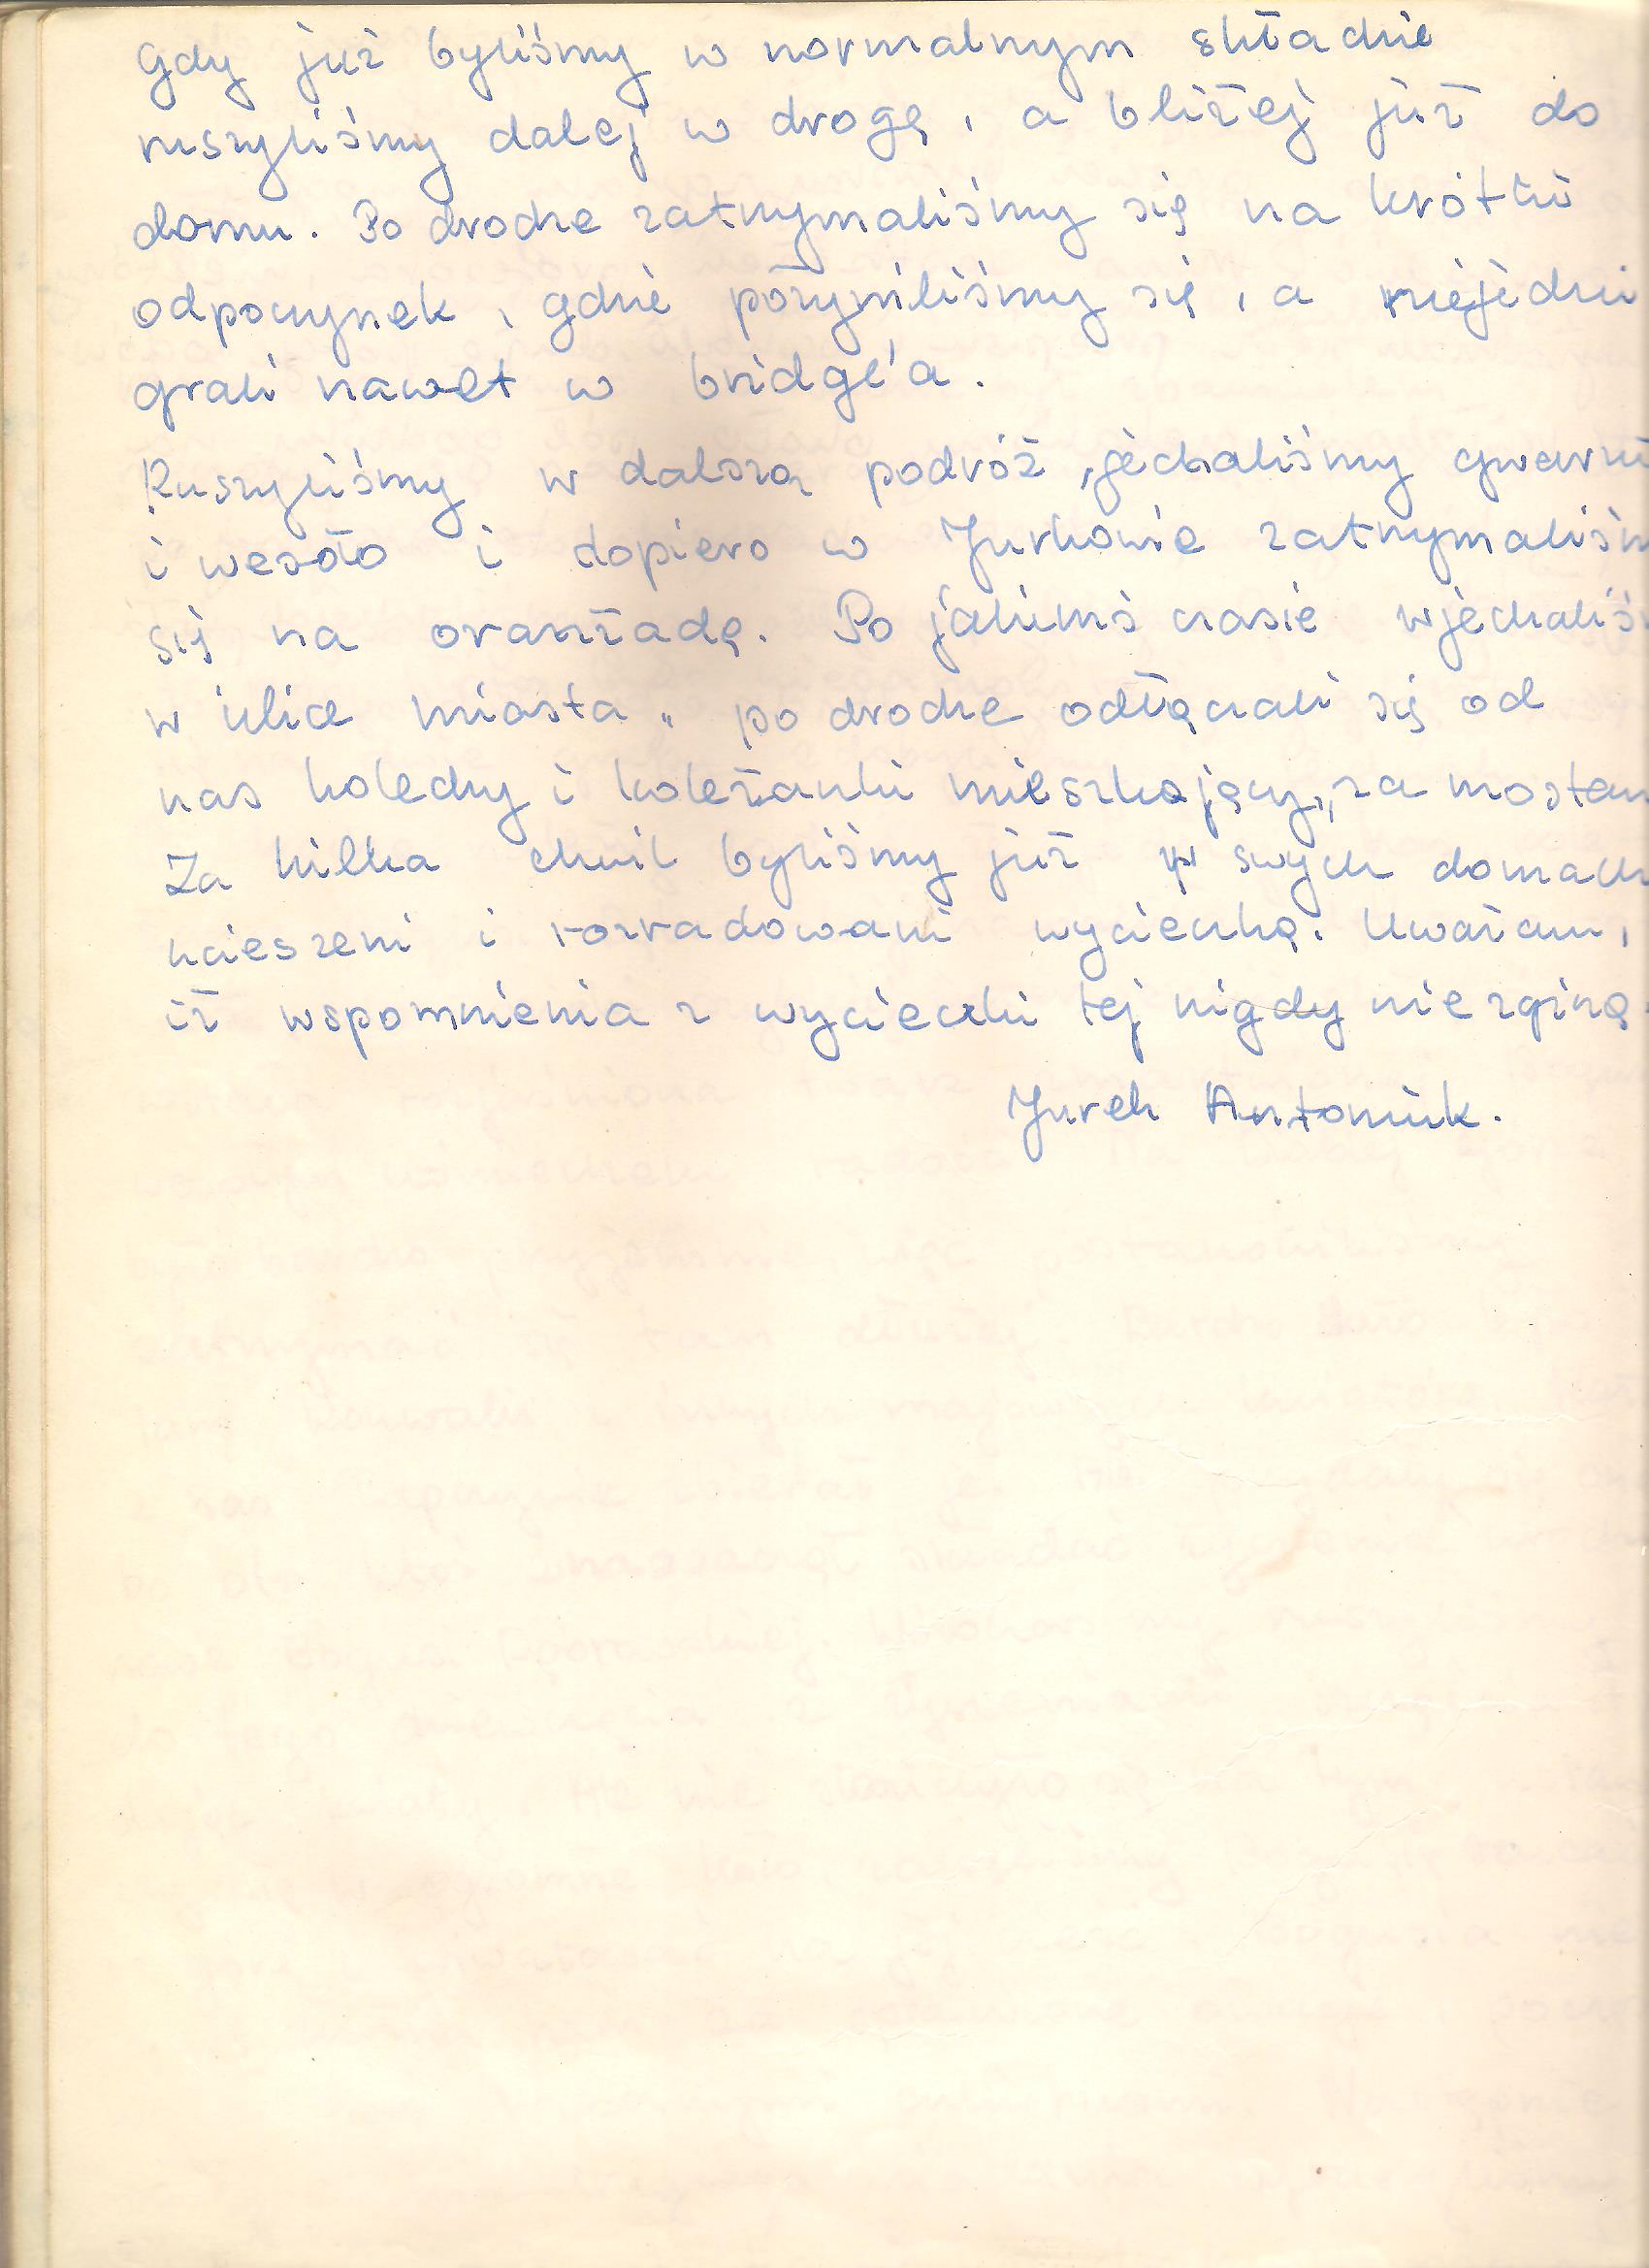 Gdy już byliśmy w normalnym składzie
ruszyliśmy dalej w drogę, a bliżej już do
domu. Po drodze zatrzymaliśmy się na krótki
odpoczynek, gdzie pożywiliśmy się, a niejedni
grali nawet w bridge'a.
Ruszyliśmy w dalszą podróż, jechaliśmy gwarnie
i wesoło i dopiero w Jurkowie zatrzymaliśm
się na oranżadę. Po jakimś czasie wjechaliś
w ulice miasta, po drodze odłączali się od
nas koledzy i koleżanki mieszkający „za mostem
Za kilka chwil byliśmy już w swych domach
ucieszeni i rozradowani wycieczką. Uważam,
iż wspomnienia z wycieczki tej nigdy nie zginą.
Jurek Antoniuk.